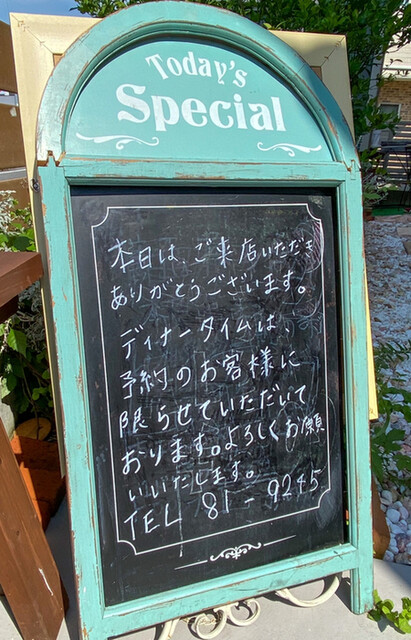 Today's
Special
本日は、ご来店いただき
ありがとうございます。
ディナータイムは、
予約のお客様に
限らせていただいて
おります。よろしくお願
いいたします。
TEL 81-9245